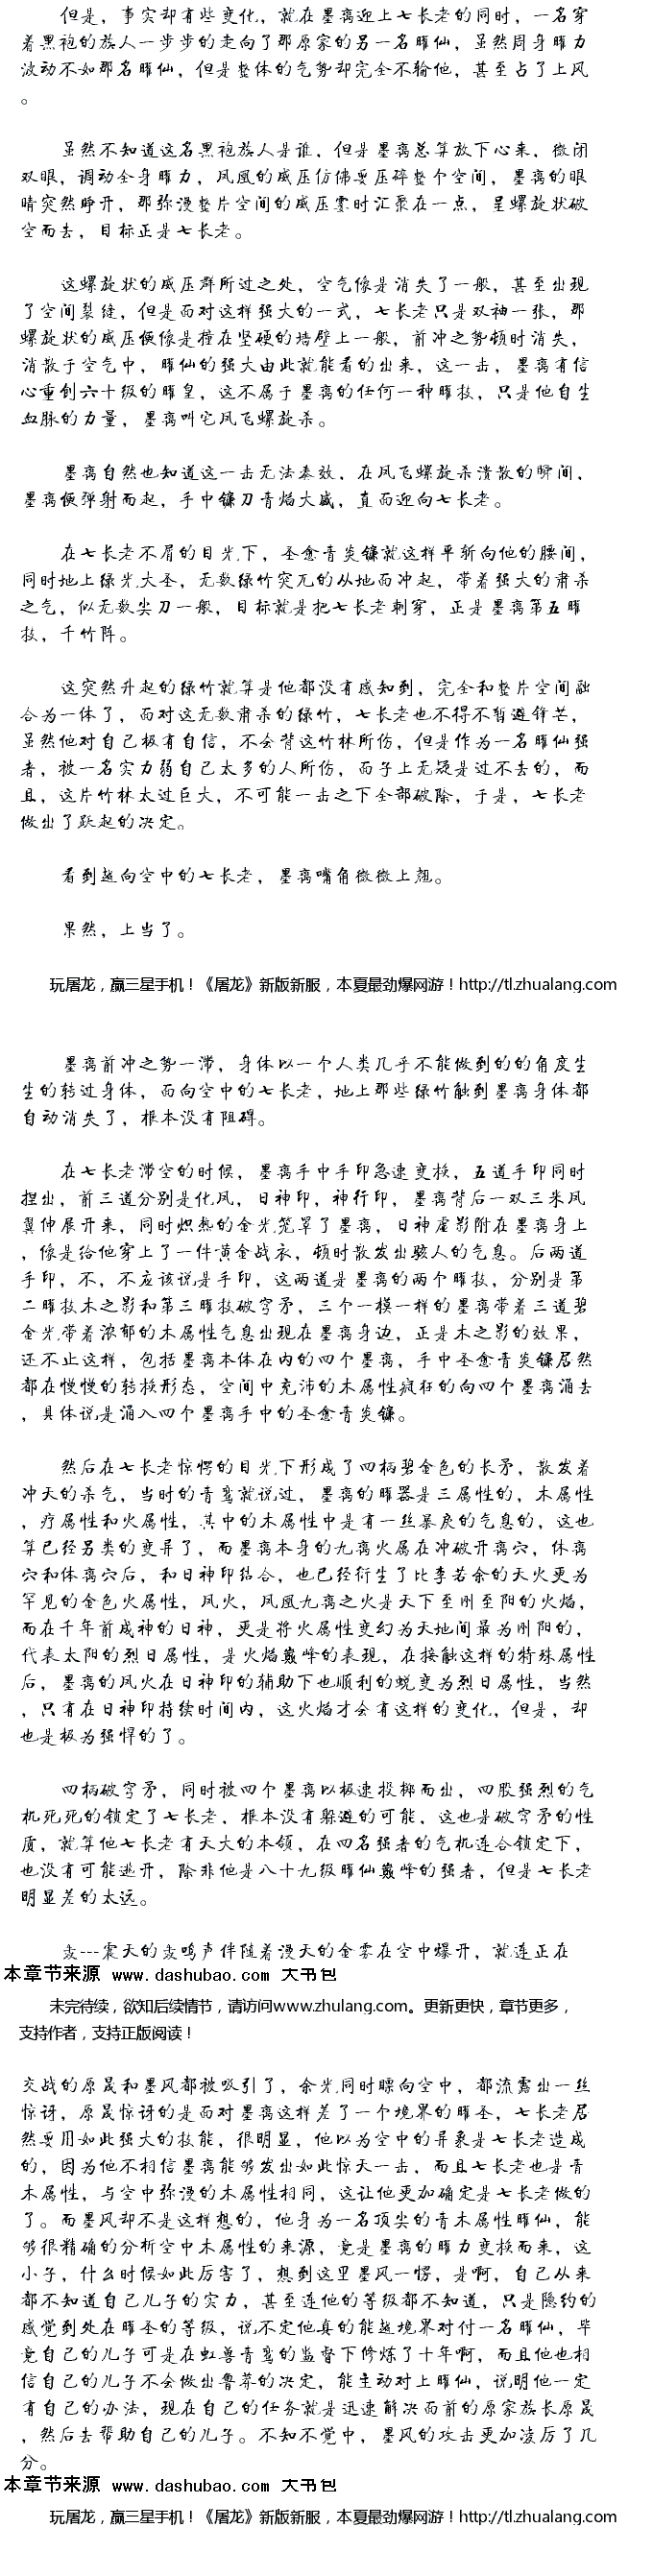 但是，事实却有些变化，就在墨离迎上七长老的同时，一名穿
着黑袍的族人一步步的走向了那原家的另一名曜仙，虽然周身曜力
波动不如那名曜仙，但是整体的气势却完全不输他，甚至占了上风
。
虽然不知道这名黑袍族人是谁，但是墨离总算放下心来，微闭
双眼，调动全身曜力，凤凰的威压仿佛要压碎整个空间，墨离的眼
睛突然睁开，那弥漫整片空间的威压霎时汇聚在一点，呈螺旋状破
空而去，目标正是七长老。
这螺旋状的威压群所过之处，空气像是消失了一般，甚至出现
了空间裂缝，但是面对这样强大的一式，七长老只是双袖一张，那
螺旋状的威压便像是撞在坚硬的墙壁上一般，前冲之势顿时消失，
消散于空气中，曜仙的强大由此就能看的出来，这一击，墨离有信
心重创六十级的曜皇，这不属于墨离的任何一种曜技，只是他自生
血脉的力量，墨离叫它凤飞螺旋杀。
墨离自然也知道这一击无法奏效，在凤飞螺旋杀溃散的瞬间，
墨离便弹射而起，手中镰刀青焰大盛，直面迎向七长老。
在七长老不屑的目光下，圣愈青炎镰就这样平斩向他的腰间，
同时地上绿光大圣，无数绿竹突兀的从地面冲起，带着强大的肃杀
之气，似无数尖刀一般，目标就是把七长老刺穿，正是墨离第五曜
技，千竹阵。
这突然升起的绿竹就算是他都没有感知到，完全和整片空间融
合为一体了，面对这无数肃杀的绿竹，七长老也不得不暂避锋芒，
虽然他对自己极有自信，不会背这竹林所伤，但是作为一名曜仙强
者，被一名实力弱自己太多的人所伤，面子上无疑是过不去的，而
且，这片竹林太过巨大，不可能一击之下全部破除，于是，七长老
做出了跃起的决定。
看到越向空中的七长老，墨离嘴角微微上翘。
果然，上当了。
玩屠龙，赢三星手机！《屠龙》新版新服，本夏最劲爆网游！http://tl.zhualang.com
墨离前冲之势一滞，身体以一个人类几乎不能做到的的角度生
生的转过身体，面向空中的七长老，地上那些绿竹触到墨离身体都
自动消失了，根本没有阻碍。
在七长老滞空的时候，墨离手中手印急速变换，五道手印同时
捏出，前三道分别是化凤，日神印，神行印，墨离背后一双三米凤
翼伸展开来，同时炽热的金光笼罩了墨离，日神虚影附在墨离身上
，像是给他穿上了一件黄金战衣，顿时散发出骇人的气息。后两道
手印，不，不应该说是手印，这两道是墨离的两个曜技，分别是第
二曜技木之影和第三曜技破穹矛，三个一模一样的墨离带着三道碧
金光带着浓郁的木属性气息出现在墨离身边，正是木之影的效果，
还不止这样，包括墨离本体在内的四个墨离，手中圣愈青炎镰居然
都在慢慢的转换形态，空间中充沛的木属性疯狂的向四个墨离涌去
，具体说是涌入四个墨离手中的圣愈青炎镰。
然后在七长老惊愕的目光下形成了四柄碧金色的长矛，散发着
冲天的杀气，当时的青鸾就说过，墨离的曜器是三属性的，木属性
，疗属性和火属性，其中的木属性中是有一丝暴戾的气息的，这也
算已经另类的变异了，而墨离本身的九离火属在冲破开离穴，休离
穴和体离穴后，和日神印结合，也已经衍生了比李若余的天火更为
罕见的金色火属性，凤火，凤凰九离之火是天下至刚至阳的火焰，
而在千年前成神的日神，更是将火属性变幻为天地间最为刚阳的，
代表太阳的烈日属性，是火焰巅峰的表现，在接触这样的特殊属性
后，墨离的凤火在日神印的辅助下也顺利的蜕变为烈日属性，当然
，只有在日神印持续时间内，这火焰才会有这样的变化，但是，却
也是极为强悍的了。
四柄破穹矛，同时被四个墨离以极速投掷而出，四股强烈的气
机死死的锁定了七长老，根本没有躲避的可能，这也是破穹矛的性
质，就算他七长老有天大的本领，在四名强者的气机连合锁定下，
也没有可能逃开，除非他是八十九级曜仙巅峰的强者，但是七长老
明显差的太远。
轰---震天的轰鸣声伴随着漫天的金雾在空中爆开，就连正在
本章节来源 www.dashubao.com 大书包
未完待续，欲知后续情节，请访问www.zhulang.com。更新更快，章节更多，
支持作者，支持正版阅读！
交战的原晟和墨风都被吸引了，余光同时瞟向空中，都流露出一丝
惊讶，原晟惊讶的是面对墨离这样差了一个境界的曜圣，七长老居
然要用如此强大的技能，很明显，他以为空中的异象是七长老造成
的，因为他不相信墨离能够发出如此惊天一击，而且七长老也是青
木属性，与空中弥漫的木属性相同，这让他更加确定是七长老做的
了。而墨风却不是这样想的，他身为一名顶尖的青木属性曜仙，能
够很精确的分析空中木属性的来源，竟是墨离的曜力变换而来，这
小子，什么时候如此厉害了，想到这里墨风一愣，是啊，自己从来
都不知道自己儿子的实力，甚至连他的等级都不知道，只是隐约的
感觉到处在曜圣的等级，说不定他真的能越境界对付一名曜仙，毕
竟自己的儿子可是在虹兽青鸾的监督下修炼了十年啊，而且他也相
信自己的儿子不会做出鲁莽的决定，能主动对上曜仙，说明他一定
有自己的办法，现在自己的任务就是迅速解决面前的原家族长原晟
，然后去帮助自己的儿子。不知不觉中，墨风的攻击更加凌厉了几
分。
本章节来源 www.dashubao.com 大书包
玩屠龙，赢三星手机！《屠龙》新版新服，本夏最劲爆网游！http://tl.zhualang.com